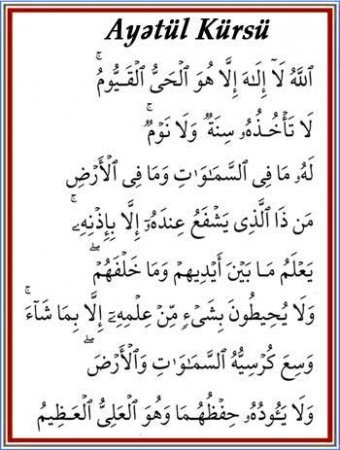 Ayətül Kürsü
ٱللَّهُ لَآ إِلَـٰهَ إِلَّا هُوَ ٱلْحَىُّ ٱلْقَيُّومُ ۚ
لَا تَأْخُذُهُۥ سِنَةٌ وَلَا نَوْمٌ ۚ
لَهُۥ مَا فِى ٱلسَّمَـٰوَٰتِ وَمَا فِى ٱلْأَرْضِ
مَن ذَا ٱلَّذِى يَشْفَعُ عِندَهُۥٓ إِلَّا بِإِذْنِهِۦ ۚ
يَعْلَمُ مَا بَيْنَ أَيْدِيهِمْ وَمَا خَلْفَهُمْ ۖ
وَلَا يُحِيطُونَ بِشَىْءٍ مِّنْ عِلْمِهِۦٓ إِلَّا بِمَا شَآءَ ۚ
وَسِعَ كُرْسِيُّهُ ٱلسَّمَـٰوَٰتِ وَٱلْأَرْضَ ۖ
وَلَا يَـُٔودُهُۥ حِفْظُهُمَا وَهُوَ ٱلْعَلِىُّ ٱلْعَظِيمُ